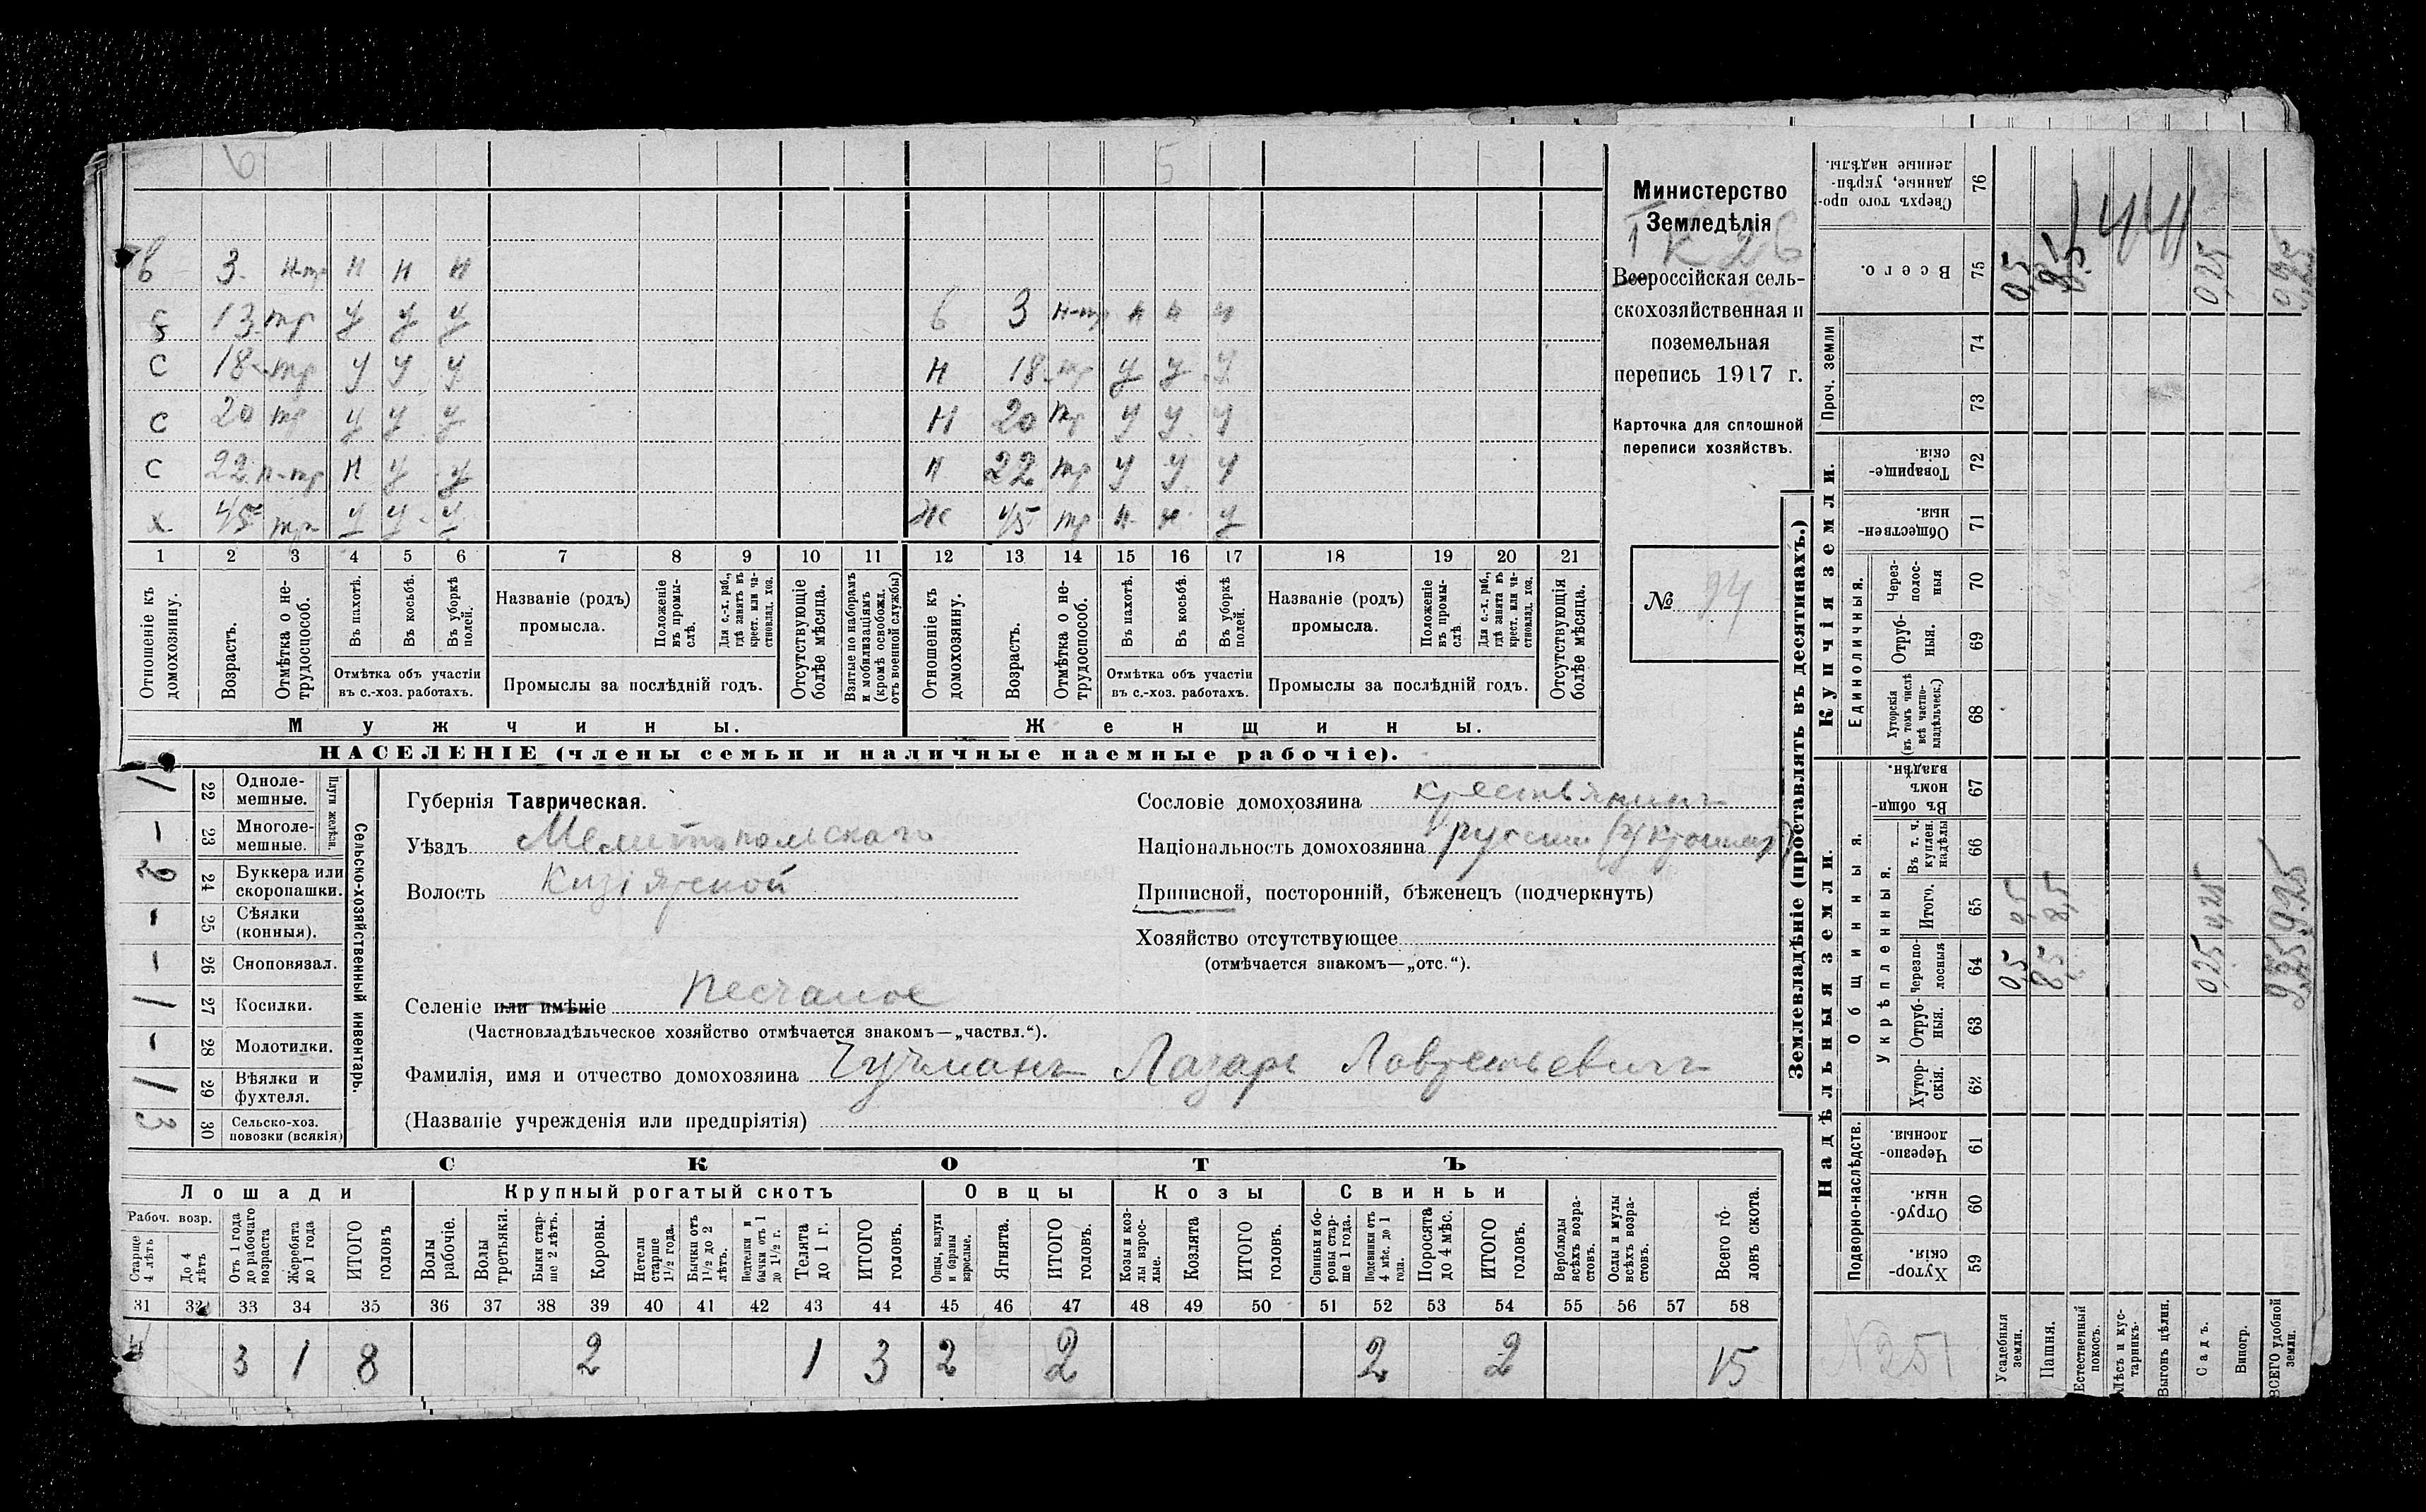 6 5
в 3 н-тр н н н
б 13 тр у у у б 3 н-тр н н н
С 18 тр у у у Н 18 тр у у у
С 20 тр у у у Н 20 тр у у у
С 22 н-тр н у у Н 22 тр у у у
х 45 тр у у у Ж 45 тр н н у
1 2 3 4 5 6 7 8 9 10 11 12 13 14 15 16 17 18 19 20 21
Отношеніе къ домохозяину.
Возрастъ.
Отмѣтка о не-трудоспособ.
Въ пахотѣ.
Въ косьбѣ.
Въ уборкѣ полей.
Отмѣтка объ участіи
въ с.-хоз. работахъ.
Названіе (родъ)
промысла.
Положеніе въ промы-слѣ.
Для с.-х. раб., гдѣ занятъ въ крест. или ча-стновлад. хоз.
Промыслы за послѣдній годъ.
Отсутствующіе болѣе мѣсяца.
Взятые по наборамъ и мобилизаціямъ (кромѣ освобожд. отъ военной службы)
Отношеніе къ домохозяину.
Возрастъ.
Отмѣтка о не-трудоспособ.
Въ пахотѣ.
Въ косьбѣ.
Въ уборкѣ полей.
Отмѣтка объ участіи
въ с.-хоз. работахъ.
Названіе (родъ)
промысла.
Положеніе въ промы-слѣ.
Для с.-х. раб., гдѣ занята въ крест. или ча-стновлад. хоз.
Промыслы за послѣдній годъ.
Отсутствующія болѣе мѣсяца.
Мужчины. Женщины.
НАСЕЛЕНІЕ (члены семьи и наличные наемные рабочіе).
Министерство
Земледѣлія
К 26
Всероссійская сель-
скохозяйственная и
поземельная
перепись 1917 г.
Карточка для сплошной
переписи хозяйствъ.
№ 94
Сельско-хозяйственный инвентарь.
Плуги желѣзн.
1 22 Одноле-мешные.
— 23 Многоле-мешные.
2 24 Буккера или скоропашки.
— 25 Сѣялки (конныя).
— 26 Сноповязал.
1 27 Косилки.
— 28 Молотилки.
1 29 Вѣялки и фухтеля.
3 30 Сельско-хоз. повозки (всякія)
Губернія Таврическая.
Уѣздъ Мелитопольскаго
Волость
Селеніе или имѣніе Песчаное
(Частновладѣльческое хозяйство отмѣчается знакомъ—„частвл.“).
Фамилія, имя и отчество домохозяина Гучманъ Лазарь Лаврентьевичъ
(Названіе учрежденія или предпріятія)
Сословіе домохозяина крестьянинъ
Національность домохозяина русскій
Приписной, посторонній, бѣженецъ (подчеркнуть)
Хозяйство отсутствующее
(отмѣчается знакомъ—„отс.“).
СКОТЪ
Лошади Крупный рогатый скотъ Овцы Козы Свиньи
Рабоч. возр.
Старше 4 лѣтъ
До 4 лѣтъ
Отъ 1 года до рабочаго возраста
Жеребята до 1 года
ИТОГО головъ
Волы рабочіе.
Волы третьяки.
Быки стар-ше 2 лѣтъ.
Коровы.
Нетели старше 1½ года.
Бычки отъ 1½ до 2 лѣтъ.
Подтелки и бычки отъ 1 до 1½ г.
Телята до 1 г.
ИТОГО головъ.
Овцы, валухи и бараны взрослые.
Ягнята.
ИТОГО головъ.
Козы и коз-лы взрос-лые.
Козлята
ИТОГО головъ.
Свиньи и бо-ровы стар-ше 1 года.
Подсвинки отъ 4 мѣс. до 1 года.
Поросята до 4 мѣс.
ИТОГО головъ.
Верблюды всѣхъ возра-стовъ.
Ослы и мулы всѣхъ возра-стовъ.
Всего го-ловъ скота.
31 32 33 34 35 36 37 38 39 40 41 42 43 44 45 46 47 48 49 50 51 52 53 54 55 56 57 58
4 3 1 8 2 1 3 2 2 2 2 15
Землевладѣніе (проставлять въ десятинахъ.)
Надѣльныя земли. Купчія земли. Проч. земли
Подворно-наслѣдств.
Общинныя.
Укрѣпленныя.
Единоличныя.
59 Хутор-скія.
60 Отруб-ныя.
61 Черезпо-лосныя.
62 Хутор-скія.
63 Отруб-ныя.
64 Черезпо-лосныя
65 Итого.
66 Въ т. ч. куплен. надѣлы
67 Въ общин-номъ владѣн.
68 Хуторскія (въ томъ числѣ всѣ частно-владѣльческ.)
69 Отруб-ныя.
70 Через-полос-ныя
71 Обществен-ныя.
72 Товарище-скія.
73
74
75 Всего.
76 Сверхъ того про-данные, укрѣп-ленные надѣлы.
Усадебныя земли. 0,5 0,5 0,5
Пашня. 8,5 8,5 8,5
Естественный покосъ.
Лѣсъ и кус-тарникъ.
Выгонъ цѣлин.
Садъ. 0,25 0,25 0,25
Виногр.
ВСЕГО удобной земли. 9,25 9,25 9,25
144
№ 251